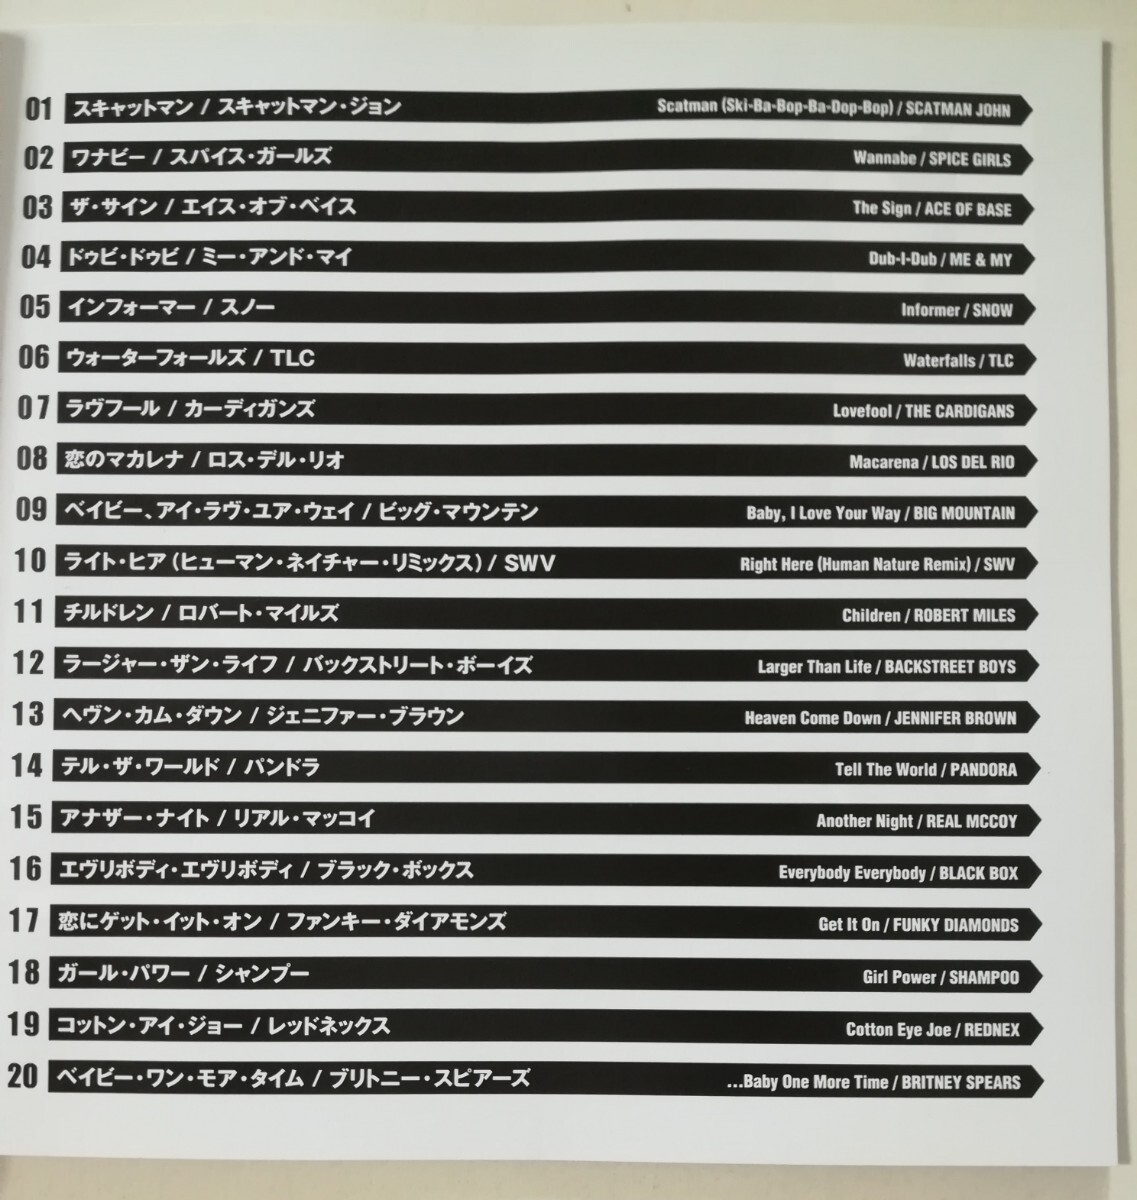 01 スキャットマン / スキャットマン・ジョン Scatman (Ski-Ba-Bop-Ba-Dop-Bop) / SCATMAN JOHN
02 ワナビー / スパイス・ガールズ Wannabe / SPICE GIRLS
03 ザ・サイン / エイス・オブ・ベイス The Sign / ACE OF BASE
04 ドゥビ・ドゥビ / ミー・アンド・マイ Dub-I-Dub / ME & MY
05 インフォーマー / スノー Informer / SNOW
06 ウォーターフォールズ / TLC Waterfalls / TLC
07 ラヴフール / カーディガンズ Lovefool / THE CARDIGANS
08 恋のマカレナ / ロス・デル・リオ Macarena / LOS DEL RIO
09 ベイビー、アイ・ラヴ・ユア・ウェイ / ビッグ・マウンテン Baby, I Love Your Way / BIG MOUNTAIN
10 ライト・ヒア（ヒューマン・ネイチャー・リミックス） / SWV Right Here (Human Nature Remix) / SWV
11 チルドレン / ロバート・マイルズ Children / ROBERT MILES
12 ラージャー・ザン・ライフ / バックストリート・ボーイズ Larger Than Life / BACKSTREET BOYS
13 ヘヴン・カム・ダウン / ジェニファー・ブラウン Heaven Come Down / JENNIFER BROWN
14 テル・ザ・ワールド / パンドラ Tell The World / PANDORA
15 アナザー・ナイト / リアル・マッコイ Another Night / REAL MCCOY
16 エヴリボディ・エヴリボディ / ブラック・ボックス Everybody Everybody / BLACK BOX
17 恋にゲット・イット・オン / ファンキー・ダイアモンズ Get It On / FUNKY DIAMONDS
18 ガール・パワー / シャンプー Girl Power / SHAMPOO
19 コットン・アイ・ジョー / レッドネックス Cotton Eye Joe / REDNEX
20 ベイビー・ワン・モア・タイム / ブリトニー・スピアーズ ...Baby One More Time / BRITNEY SPEARS